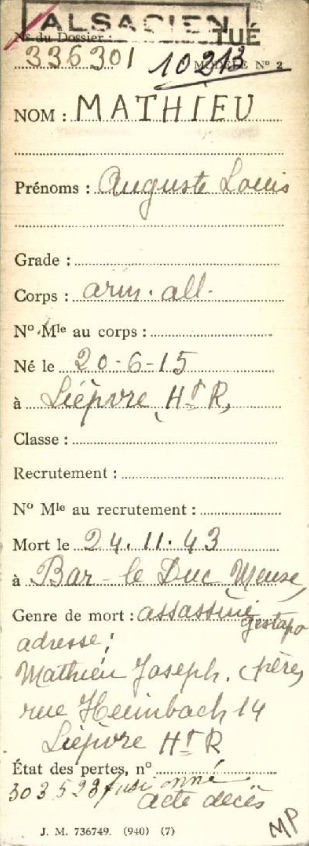 ALSACIEN
TUÉ
No du Dossier :
336301
10213
MODÈLE No 2
NOM : MATHIEU
Prénoms : Auguste Louis
Grade :
Corps : arm. all.
No Mle au corps :
Né le 20-6-15
à Lièpvre, Ht R,
Classe :
Recrutement :
No Mle au recrutement :
Mort le 24.11.43
à Bar-le Duc Meuse,
Genre de mort : assassiné
gestapo
adresse :
Mathieu Joseph. (frère)
rue Heimbach 14
Lièpvre Ht R
État des pertes, no
303523 fusionné
acte décès
J. M. 736749. (940) (7)
MP